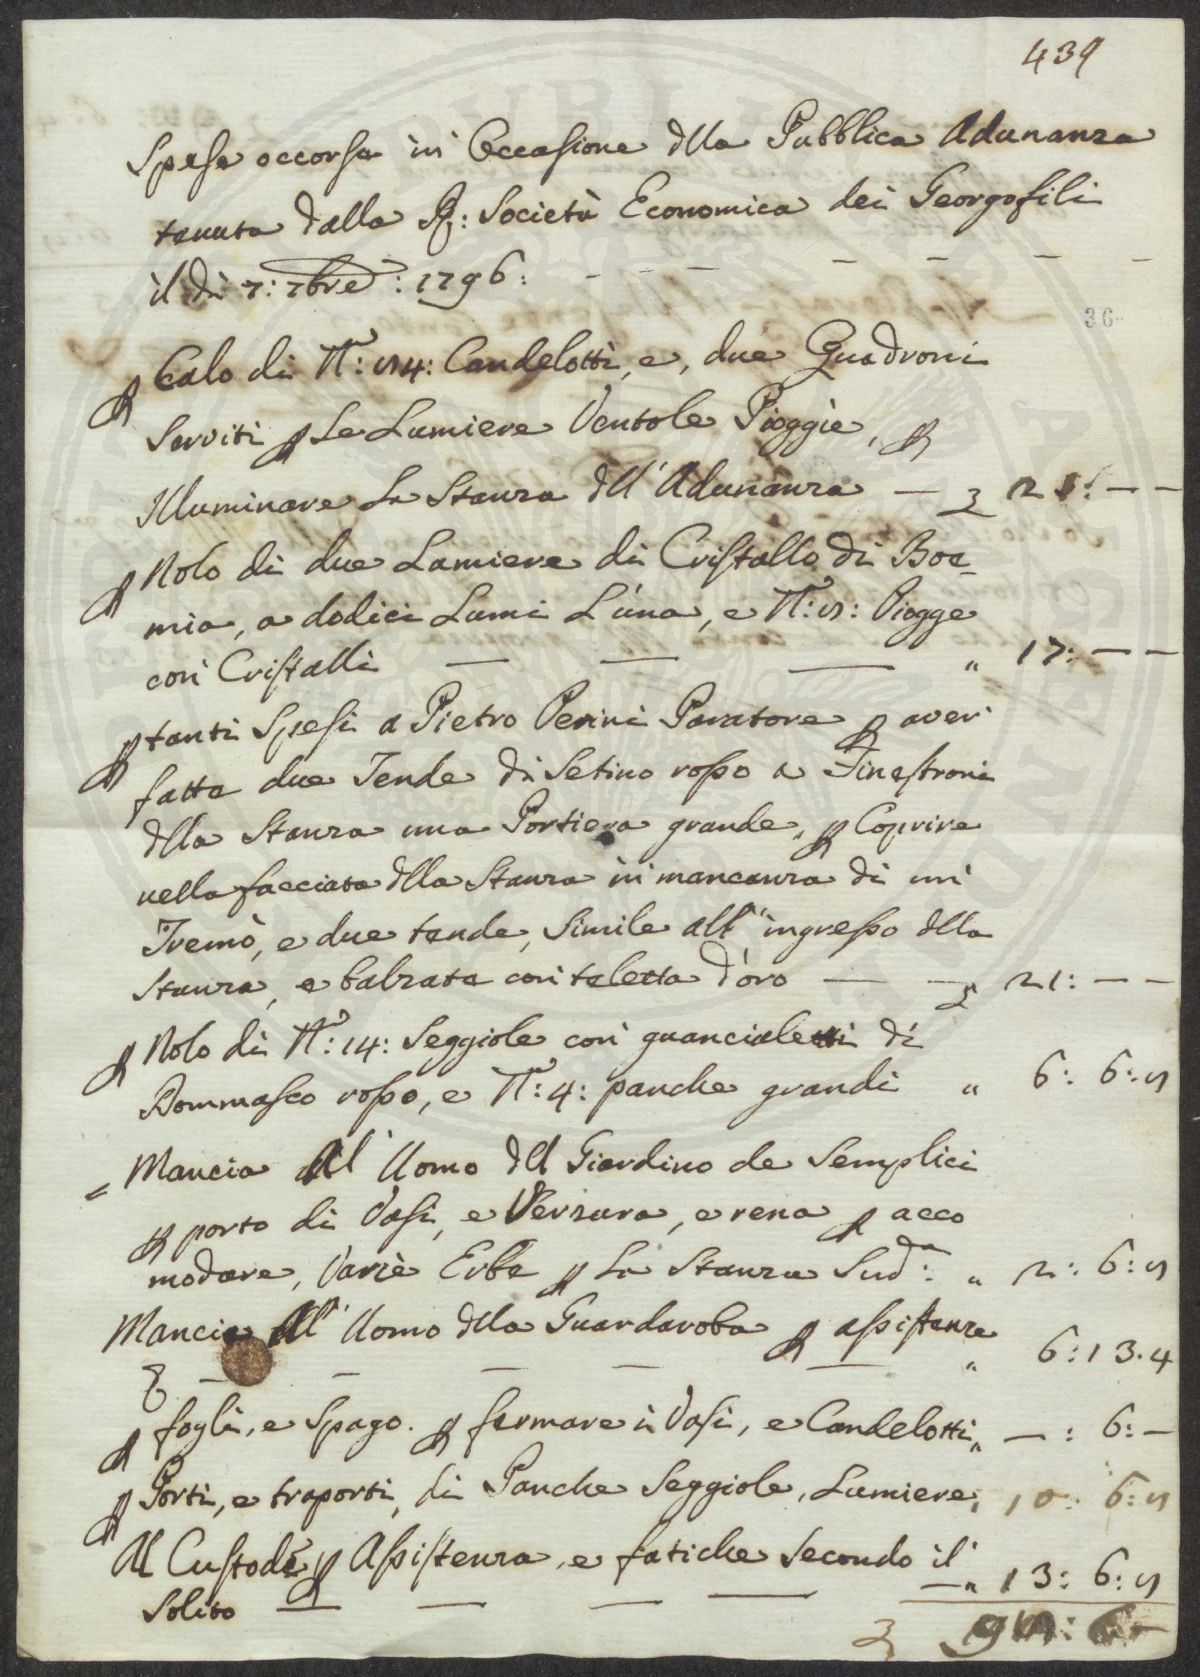 439
Spese occorse in Occasione dlla Pubblica Adunanza
tenuta dalla R: Società Economica dei Georgofili
il dì 7: 7bre: 1796: - - - - - - -
36
p Calo di N: 84: Candelotti, e, due Quadroni
Serviti p Le Lumiere Ventole Pioggie, p
Illuminare La Stanza dll' Adunanza —
p Nolo di due Lumiere di Cristallo di Boe-
mia, a dodici Lumi L'una, e N: 8: Piogge
con Cristalli — — — " 17: — —
p tanti Spesi a Pietro Perini Paratore p aver
fatte due Tende di Setino rosso a Finestroni
dlla Stanza una Portiera grande, p Coprire
nella facciata dlla Stanza in mancanza di un
Tremò, e due tende, Simile all' ingresso dlla
Stanza, e balzata con teletta d'oro — — 21: — —
p Nolo di N: 14: Seggiole con guancialetti di
Dommasco rosso, e N: 4: panche grandi " 6: 6: 8
= Mancia All' Uomo dll Giardino de Semplici
p porto di Vasi, e Verzura, e rena p acco
modare, Varie Erbe p La Stanza Sud:ª " 2: 6: 8
Mancia All' Uomo dlla Guardaroba p assistenze
— — — — " 6: 13. 4
p fogli, e Spago. p fermare i Vasi, e Candelotti " — : 6: —
p Porti, e traporti, di Panche Seggiole, Lumiere, 10: 6: 8
Al Custode p Assistenza, e fatiche Secondo il
Solito — — — — " 13: 6: 8